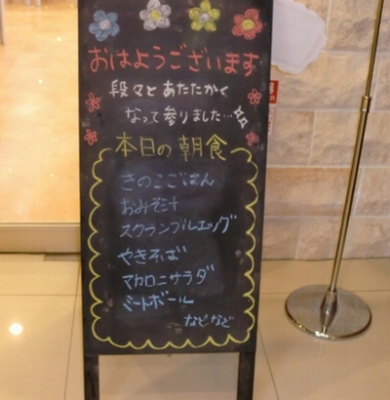 おはようございます
段々とあたたかく
なって参りました…
本日の朝食
きのこごはん
おみそ汁
スクランブルエッグ
やきそば
マカロニサラダ
ミートボール
などなど